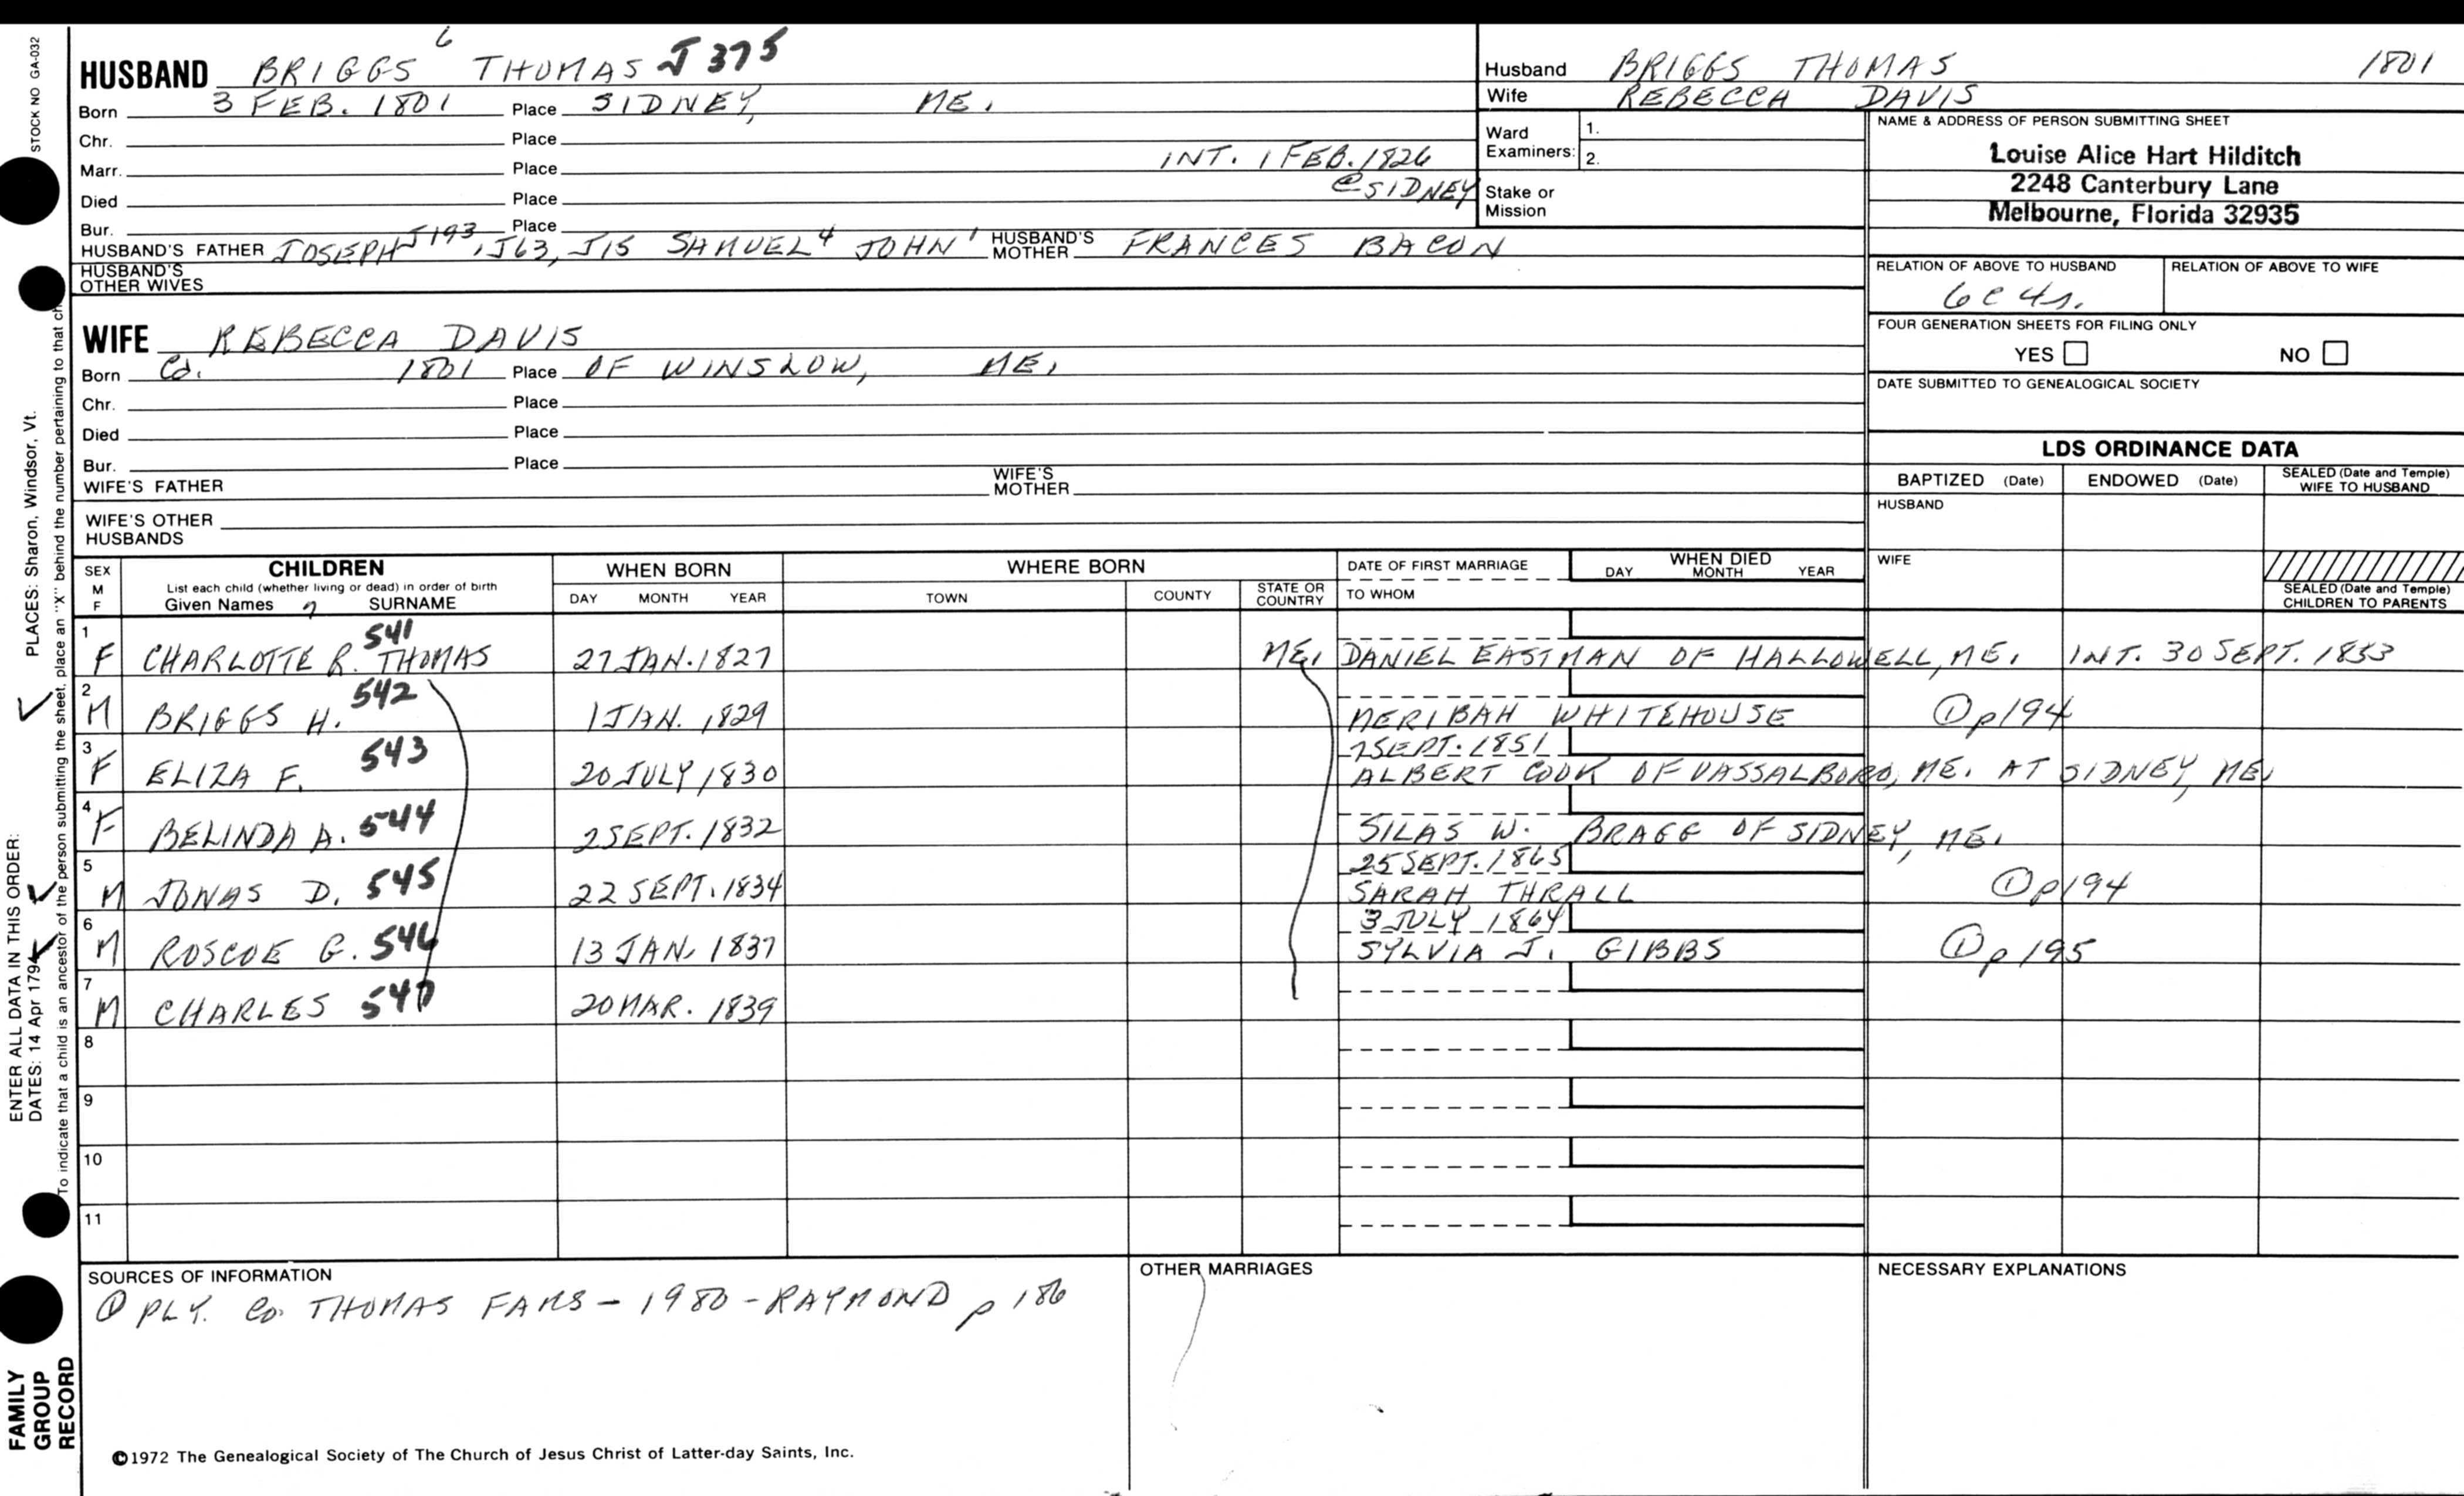 STOCK NO GA-032
HUSBAND BRIGGS 6 THOMAS J 375
Born 3 FEB. 1801 Place SIDNEY, ME.
Chr. Place
Marr. Place INT. 1 FEB. 1826
@ SIDNEY
Died Place
Bur. Place
HUSBAND'S FATHER JOSEPH J193, J63, J15 SAMUEL 4 JOHN 1 HUSBAND'S MOTHER FRANCES BACON
HUSBAND'S OTHER WIVES
WIFE REBECCA DAVIS
Born Ca. 1801 Place OF WINSLOW, ME.
Chr. Place
Died Place
Bur. Place
WIFE'S FATHER WIFE'S MOTHER
WIFE'S OTHER HUSBANDS
Husband BRIGGS THOMAS 1801
Wife REBECCA DAVIS
Ward Examiners: 1. 2.
Stake or Mission
NAME & ADDRESS OF PERSON SUBMITTING SHEET
Louise Alice Hart Hilditch
2248 Canterbury Lane
Melbourne, Florida 32935
RELATION OF ABOVE TO HUSBAND RELATION OF ABOVE TO WIFE
6c 4r.
FOUR GENERATION SHEETS FOR FILING ONLY
YES NO
DATE SUBMITTED TO GENEALOGICAL SOCIETY
LDS ORDINANCE DATA
BAPTIZED (Date) ENDOWED (Date) SEALED (Date and Temple) WIFE TO HUSBAND
HUSBAND
WIFE
SEALED (Date and Temple) CHILDREN TO PARENTS
SEX M F
CHILDREN
List each child (whether living or dead) in order of birth
Given Names 7 SURNAME
WHEN BORN
DAY MONTH YEAR
WHERE BORN
TOWN COUNTY STATE OR COUNTRY
DATE OF FIRST MARRIAGE
TO WHOM
WHEN DIED
DAY MONTH YEAR
1 F CHARLOTTE R. THOMAS 541 27 JAN. 1827 ME. DANIEL EASTMAN OF HALLOWELL, ME. INT. 30 SEPT. 1853
2 M BRIGGS H. 542 1 JAN. 1829 MERIBAH WHITEHOUSE ① p194
3 F ELIZA F. 543 20 JULY 1830 7 SEPT. 1851
ALBERT COOK OF VASSALBORO, ME. AT SIDNEY, ME.
4 F BELINDA A. 544 2 SEPT. 1832 SILAS W. BRAGG OF SIDNEY, ME.
5 M JONAS D. 545 22 SEPT. 1834 25 SEPT. 1865
SARAH THRALL ① p194
6 M ROSCOE G. 546 13 JAN. 1837 3 JULY 1864
SYLVIA J. GIBBS ① p195
7 M CHARLES 547 20 MAR. 1839
8
9
10
11
SOURCES OF INFORMATION
① PLY. Co. THOMAS FAMS - 1980 - RAYMOND p 186
OTHER MARRIAGES
NECESSARY EXPLANATIONS
©1972 The Genealogical Society of The Church of Jesus Christ of Latter-day Saints, Inc.
ENTER ALL DATA IN THIS ORDER:
DATES: 14 Apr 1794
PLACES: Sharon, Windsor, Vt.
To indicate that a child is an ancestor of the person submitting the sheet, place an "X" behind the number pertaining to that ch
FAMILY
GROUP
RECORD